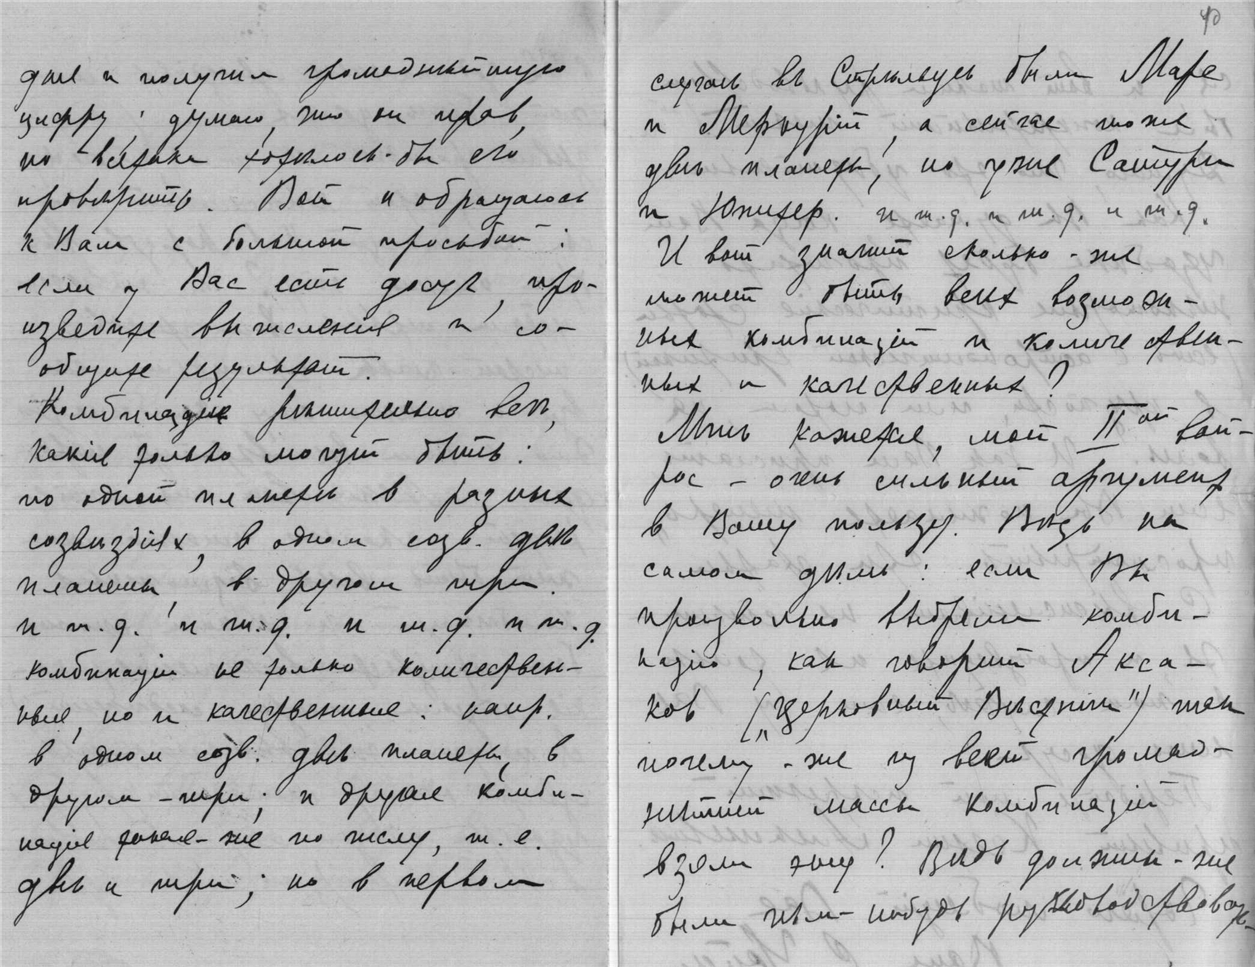 дѣле и получил громаднѣйшую
цифру; думаю, что он прав,
но всетаки хотѣлось-бы его
провѣрить. Вот и обращаюсь
к Вам с большой просьбой:
если у Вас есть досуг, про-
изведите вычисления и со-
общите результат.
Комбинации рѣшительно всѣ,
какія только могут быть:
по одной планетѣ в разных
созвѣздіях, в одном созв. двѣ
планеты, в другом три.
и т.д. и т.д. и т.д. и т.д.
комбинаціи не только количествен-
ные, но и качественные: напр.
в одном созв. двѣ планеты, в
другом - три; и другая комби-
нація такая-же по числу, т.е.
двѣ и три; но в первом
40
случаѣ въ Стрѣльцѣ были Марс
и Меркурій, а сейчас тоже
двѣ планеты, но уже Сатурн
и Юпитер. и т.д. и т.д. и т.д.
И вот значит сколько-же
может быть всѣх возмож-
ных комбинацій и количествен-
ных и качественных?
Мнѣ кажется, мой II ой воп-
рос - очень сильный аргумент
в Вашу пользу. Вѣдь на
самом дѣлѣ: если Вы
произвольно выбрали комби-
націю, как говорит Акса-
ков („Церковный Вѣстник") так
почему-же из всей громад-
нѣйшей массы комбинацій
взяли эту? Вѣдь должны-же
были чѣм-нибудь руководствовать-